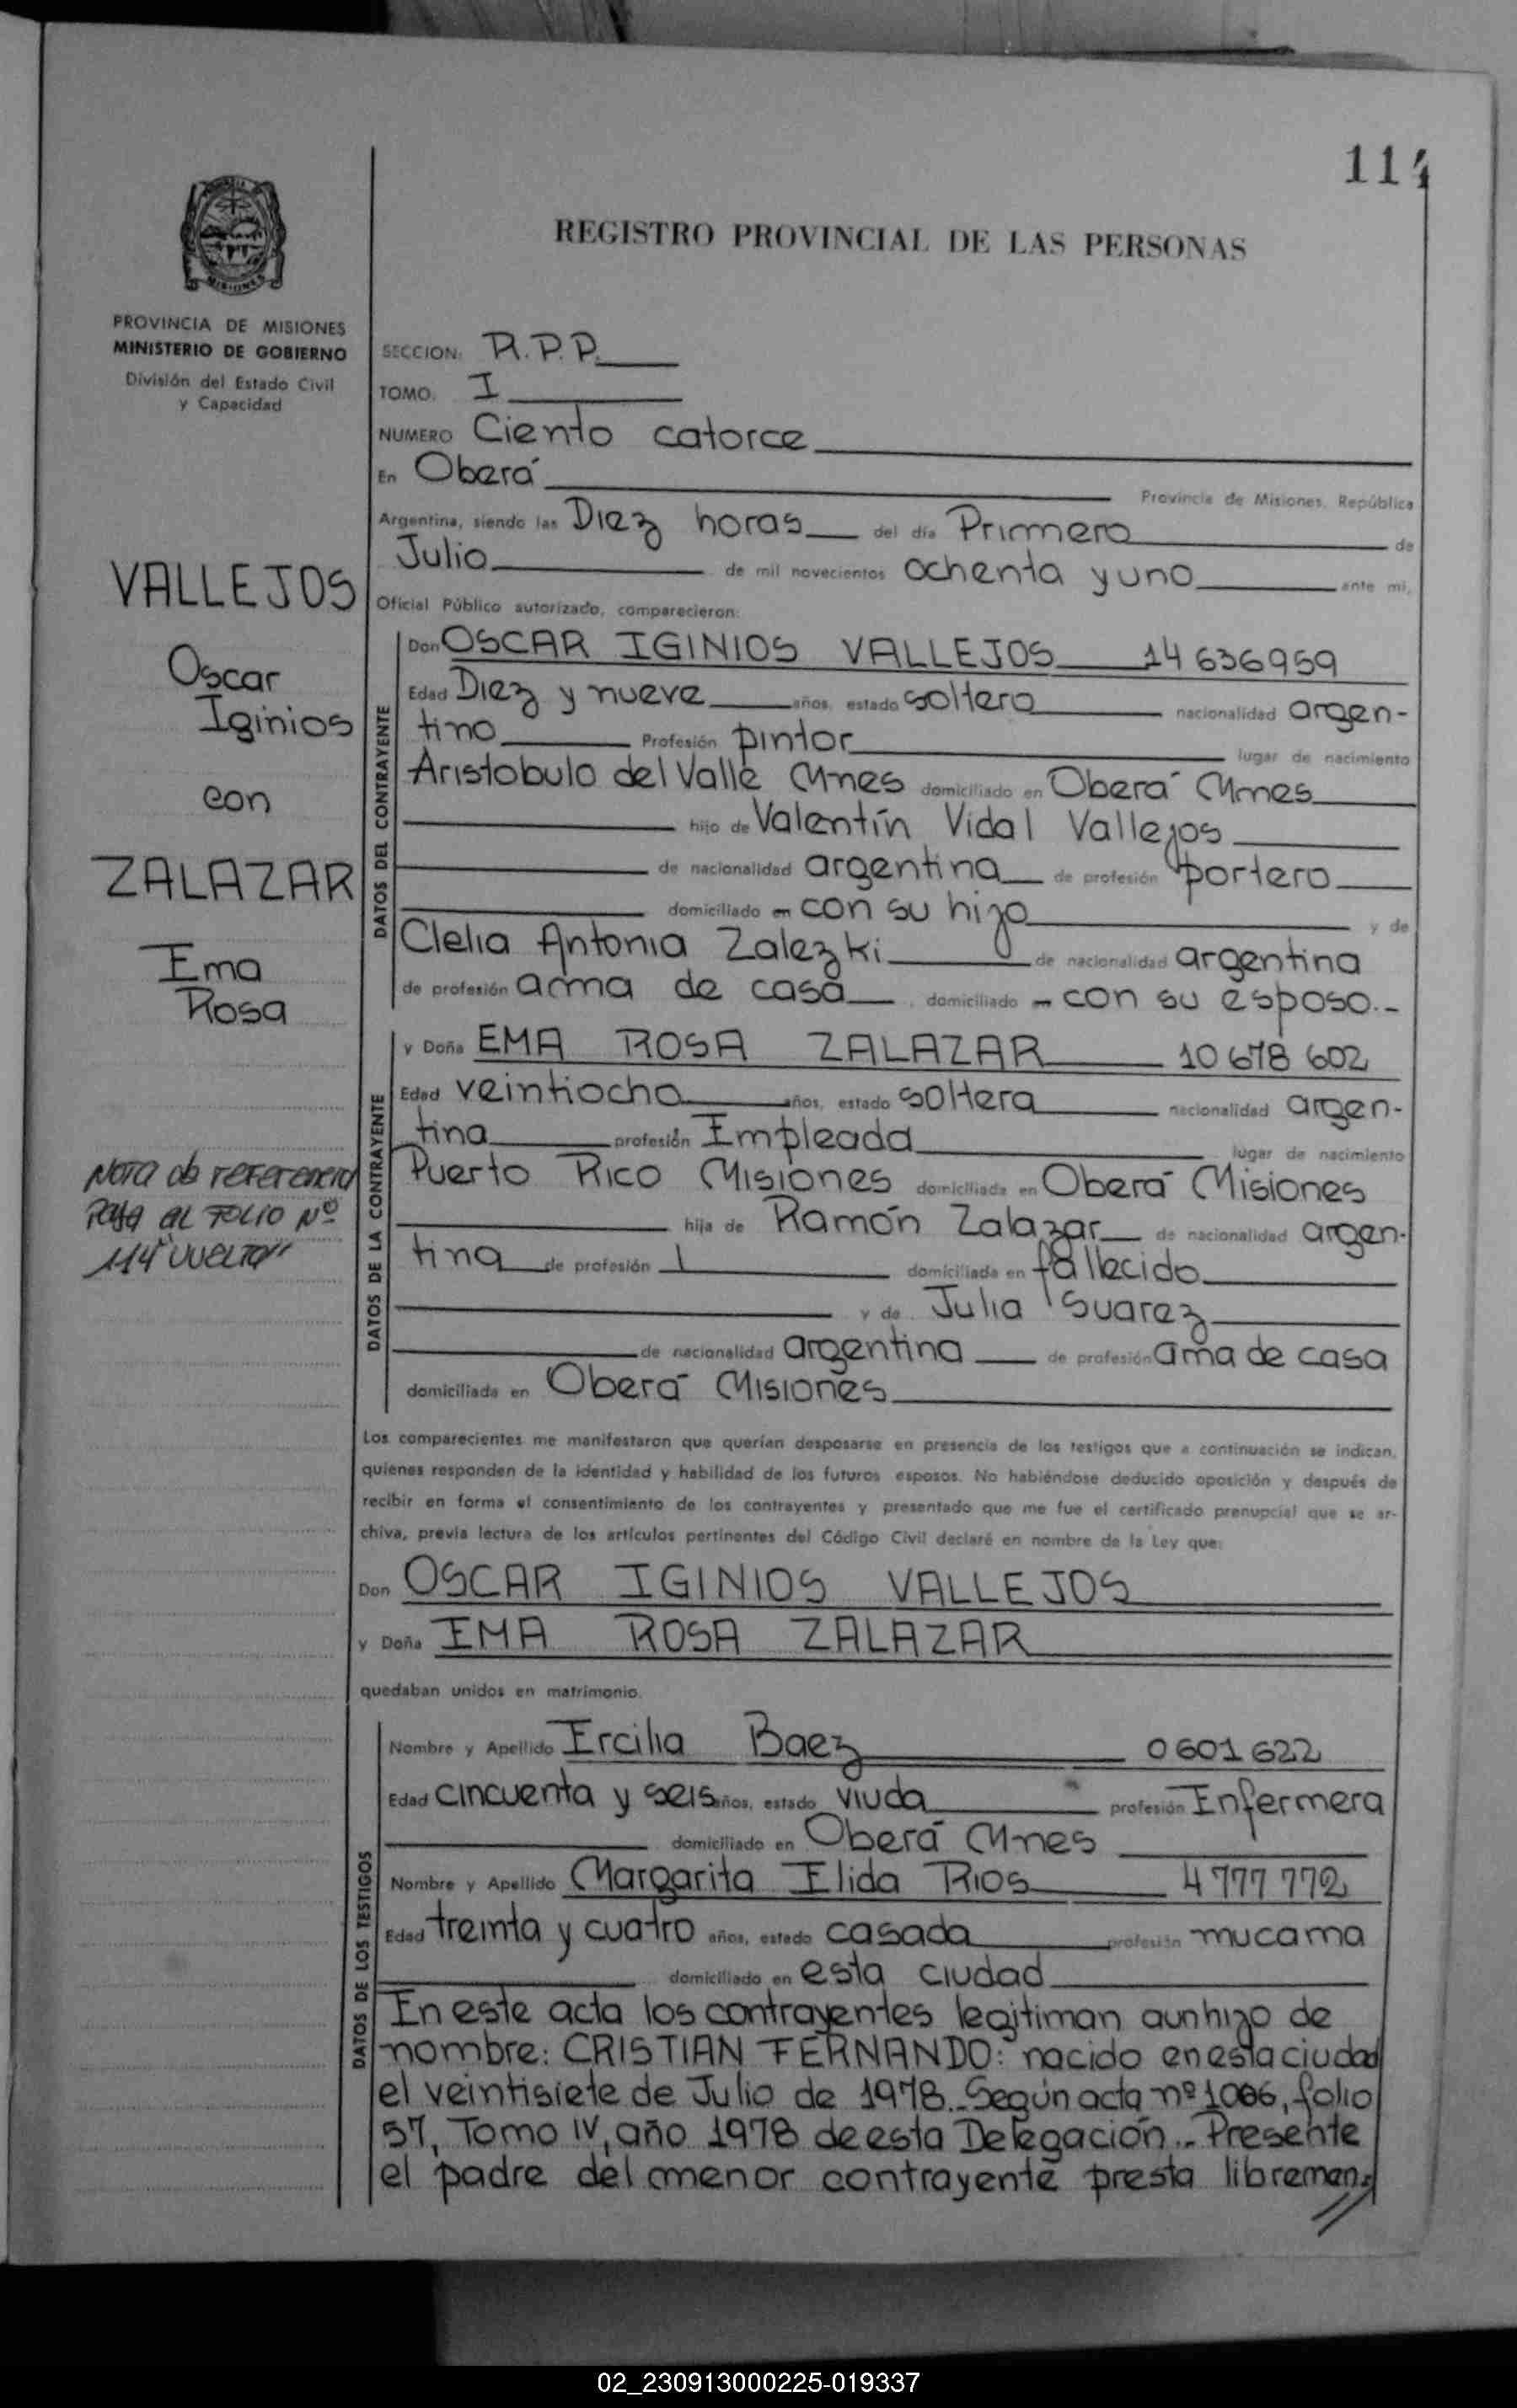 114
REGISTRO PROVINCIAL DE LAS PERSONAS
MISIONES
PROVINCIA DE MISIONES
MINISTERIO DE GOBIERNO
División del Estado Civil
y Capacidad
VALLEJOS
Oscar
Iginios
con
ZALAZAR
Ema
Rosa
Nota de referencia
Pasa al Folio Nº
114 "VUELTO"
SECCION: R.P.P.
TOMO: I
NUMERO Ciento catorce
En Oberá Provincia de Misiones, República
Argentina, siendo las Diez horas del día Primero de
Julio de mil novecientos ochenta y uno ante mi,
Oficial Público autorizado, comparecieron:
DATOS DEL CONTRAYENTE
Don OSCAR IGINIOS VALLEJOS 14 636959
Edad Diez y nueve años, estado soltero nacionalidad argen-
tino Profesión pintor lugar de nacimiento
Aristobulo del Valle Mnes domiciliado en Oberá Mnes
hijo de Valentín Vidal Vallejos
de nacionalidad argentina de profesión portero
domiciliado en con su hijo y de
Clelia Antonia Zalezki de nacionalidad argentina
de profesión ama de casa domiciliado en con su esposo.-
DATOS DE LA CONTRAYENTE
y Doña EMA ROSA ZALAZAR 10 678 602
Edad veintiocho años, estado soltera nacionalidad argen-
tina profesión Empleada lugar de nacimiento
Puerto Rico Misiones domiciliada en Oberá Misiones
hija de Ramón Zalazar de nacionalidad argen-
tina de profesión domiciliada en fallecido
y de Julia Suarez
de nacionalidad argentina de profesión ama de casa
domiciliada en Oberá Misiones
Los comparecientes me manifestaron que querían desposarse en presencia de los testigos que a continuación se indican,
quienes responden de la identidad y habilidad de los futuros esposos. No habiéndose deducido oposición y después de
recibir en forma el consentimiento de los contrayentes y presentado que me fue el certificado prenupcial que se ar-
chiva, previa lectura de los artículos pertinentes del Código Civil declaré en nombre de la Ley que:
Don OSCAR IGINIOS VALLEJOS
y Doña EMA ROSA ZALAZAR
quedaban unidos en matrimonio.
DATOS DE LOS TESTIGOS
Nombre y Apellido Ercilia Baez 0601622
Edad cincuenta y seis años, estado viuda profesión Enfermera
domiciliado en Oberá Mnes
Nombre y Apellido Margarita Elida Rios 4 777 772
Edad treinta y cuatro años, estado casada profesión mucama
domiciliado en esta ciudad
En este acta los contrayentes legitiman a un hijo de
nombre: CRISTIAN FERNANDO: nacido en esta ciudad
el veintisiete de Julio de 1978.- Según acta nº 1006, folio
57, Tomo IV, año 1978 de esta Delegación.- Presente
el padre del menor contrayente presta libremen.
//
02_230913000225-019337